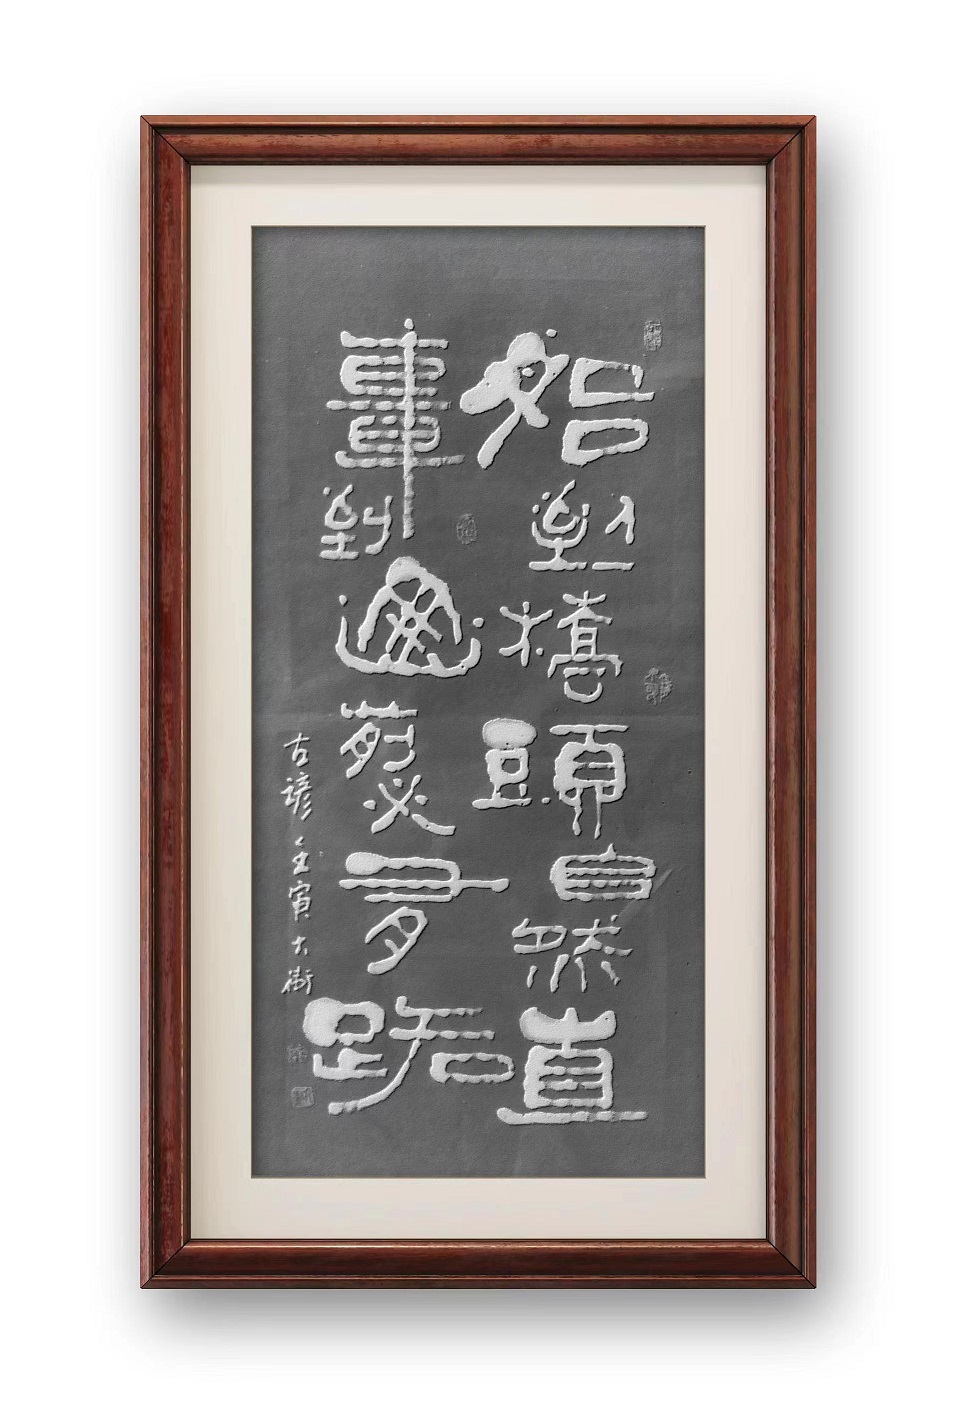 船到橋頭自然直
車到山前必有路
古諺 壬寅 大衛